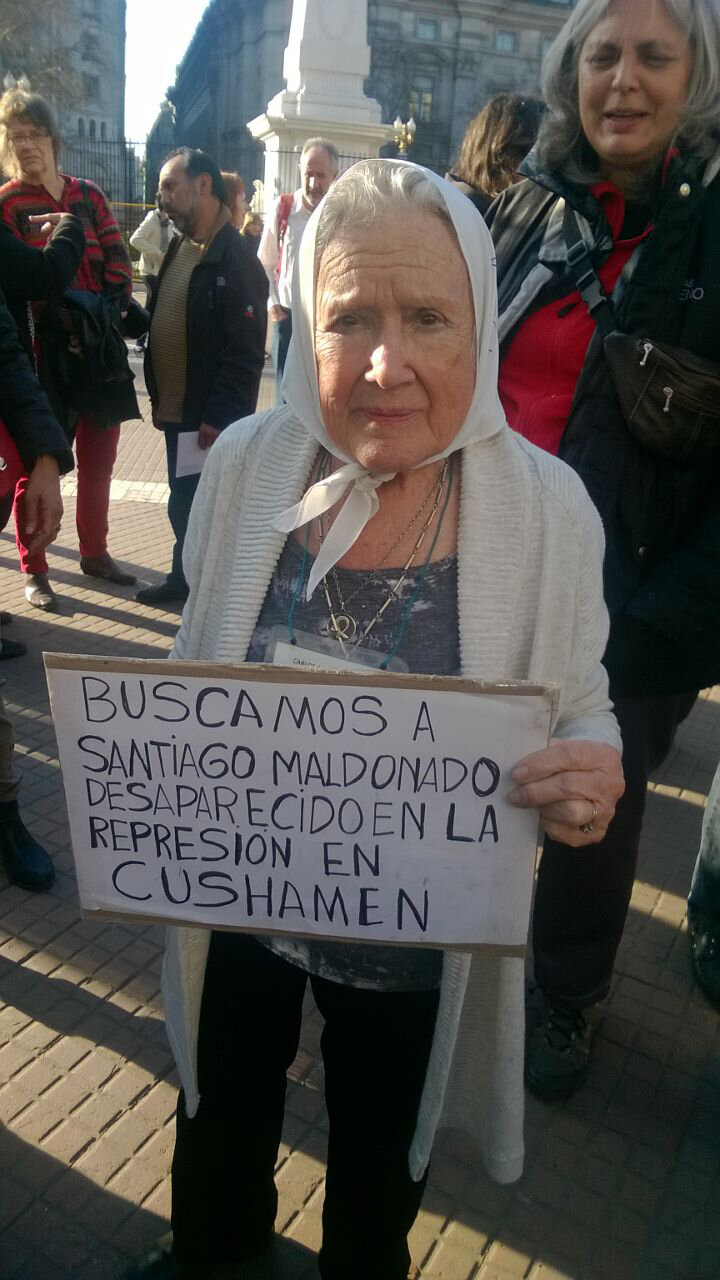 BUSCAMOS A
SANTIAGO MALDONADO
DESAPARECIDO EN LA
REPRESIÓN EN
CUSHAMEN